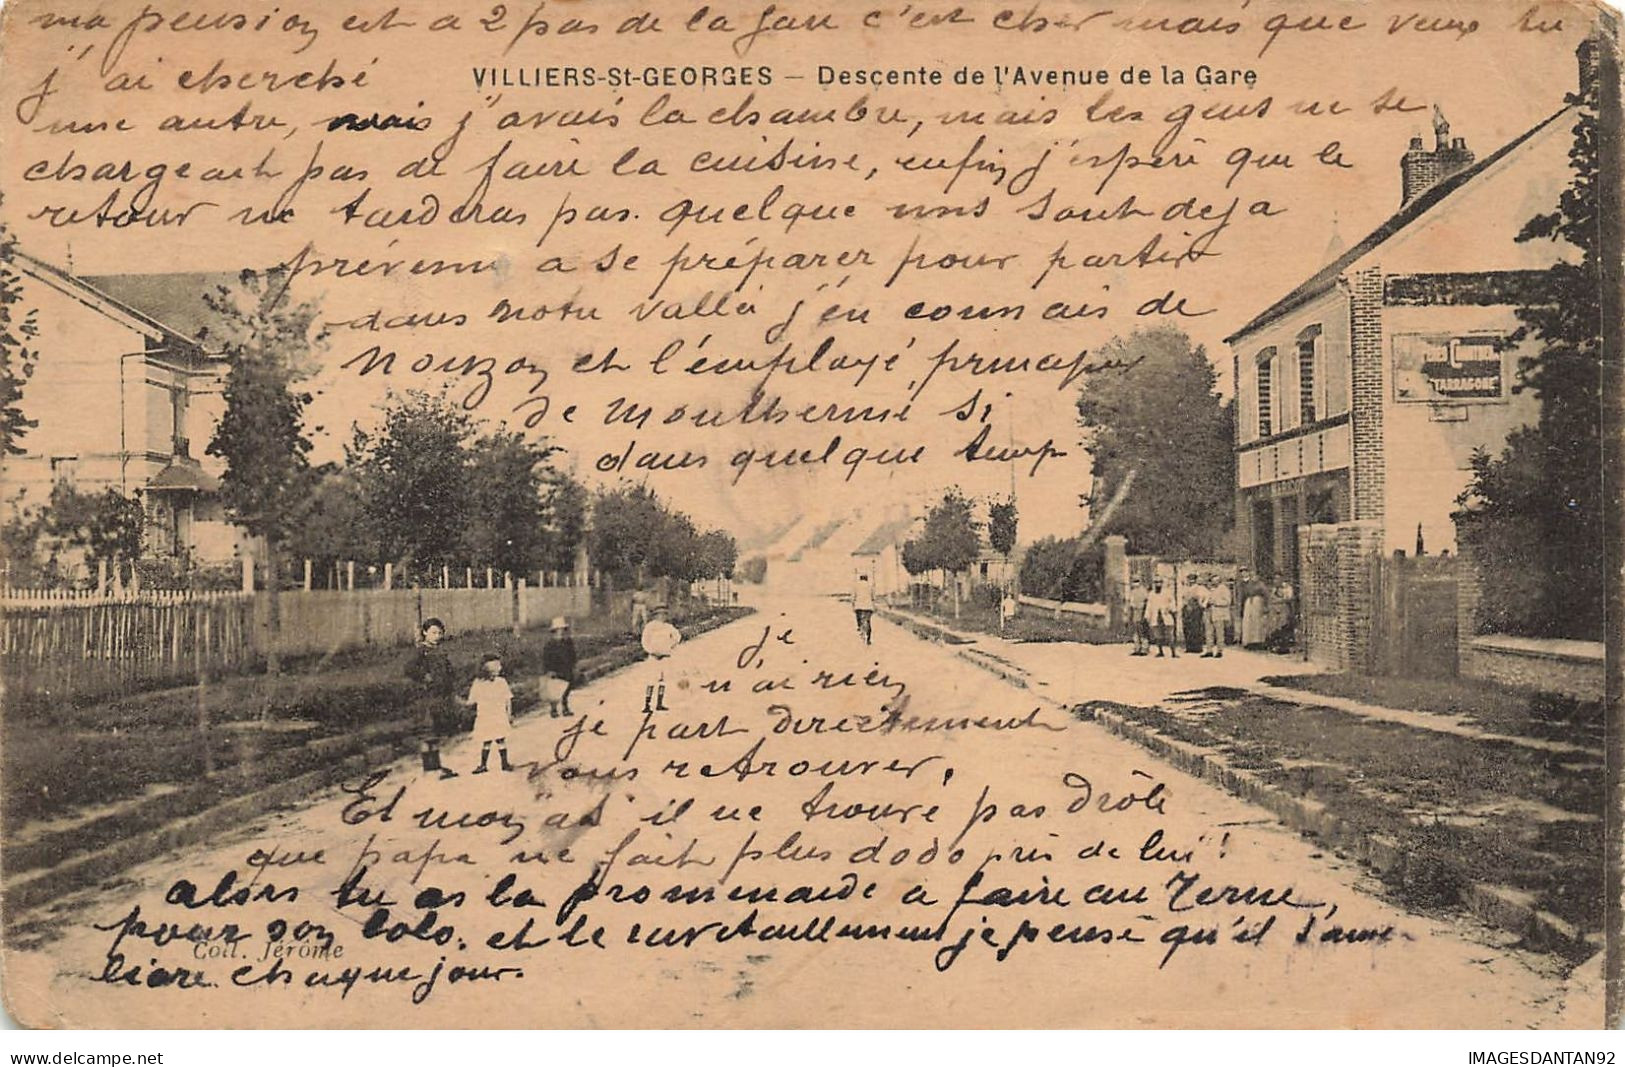 ma pension est a 2 pas de la gare c'est cher mais que veux tu
j'ai cherché
VILLIERS-St-GEORGES — Descente de l'Avenue de la Gare
une autre, mais j'avais la chambre, mais les gens ne se
chargeait pas de faire la cuisine, enfin j'espère que le
retour ne tarderas pas. quelque uns sont deja
prévenu a se préparer pour partir
dans notre vallé j'en connais de
Nouzon et l'employé principal
de Monthermé si
dans quelque temp
TARRAGONE
je
n'ai rien
je part directement
vous retrouver,
Et moyas il ne trouve pas drôle
que papa ne fait plus dodo près de lui !
alors tu as la promenade a faire au Terme,
pour son lolo. et le ravitaillement je pense qu'il s'amé-
liore chaque jour.
Coll. Jérôme
delcampe.net
IMAGESDANTAN92